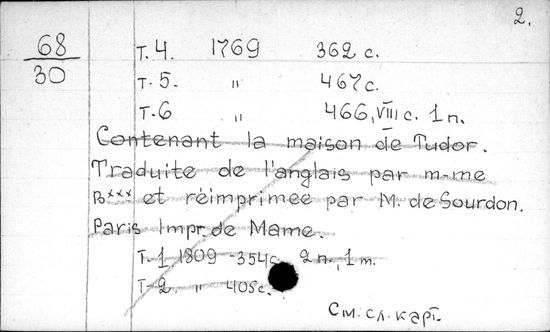 2.
68
30
Т. 4. 1769 362 с.
Т. 5. " 467 с.
Т. 6 " 466, VIII с. 1 п.
Contenant la maison de Tudor.
Traduite de l'anglais par m-me
B*** et réimprimée par M. de Sourdon.
Paris Impr. de Mame.
Т. 1 1809 - 354 с. 2 п., 1 т.
Т-2 " 408 с.
См. сл. карт.